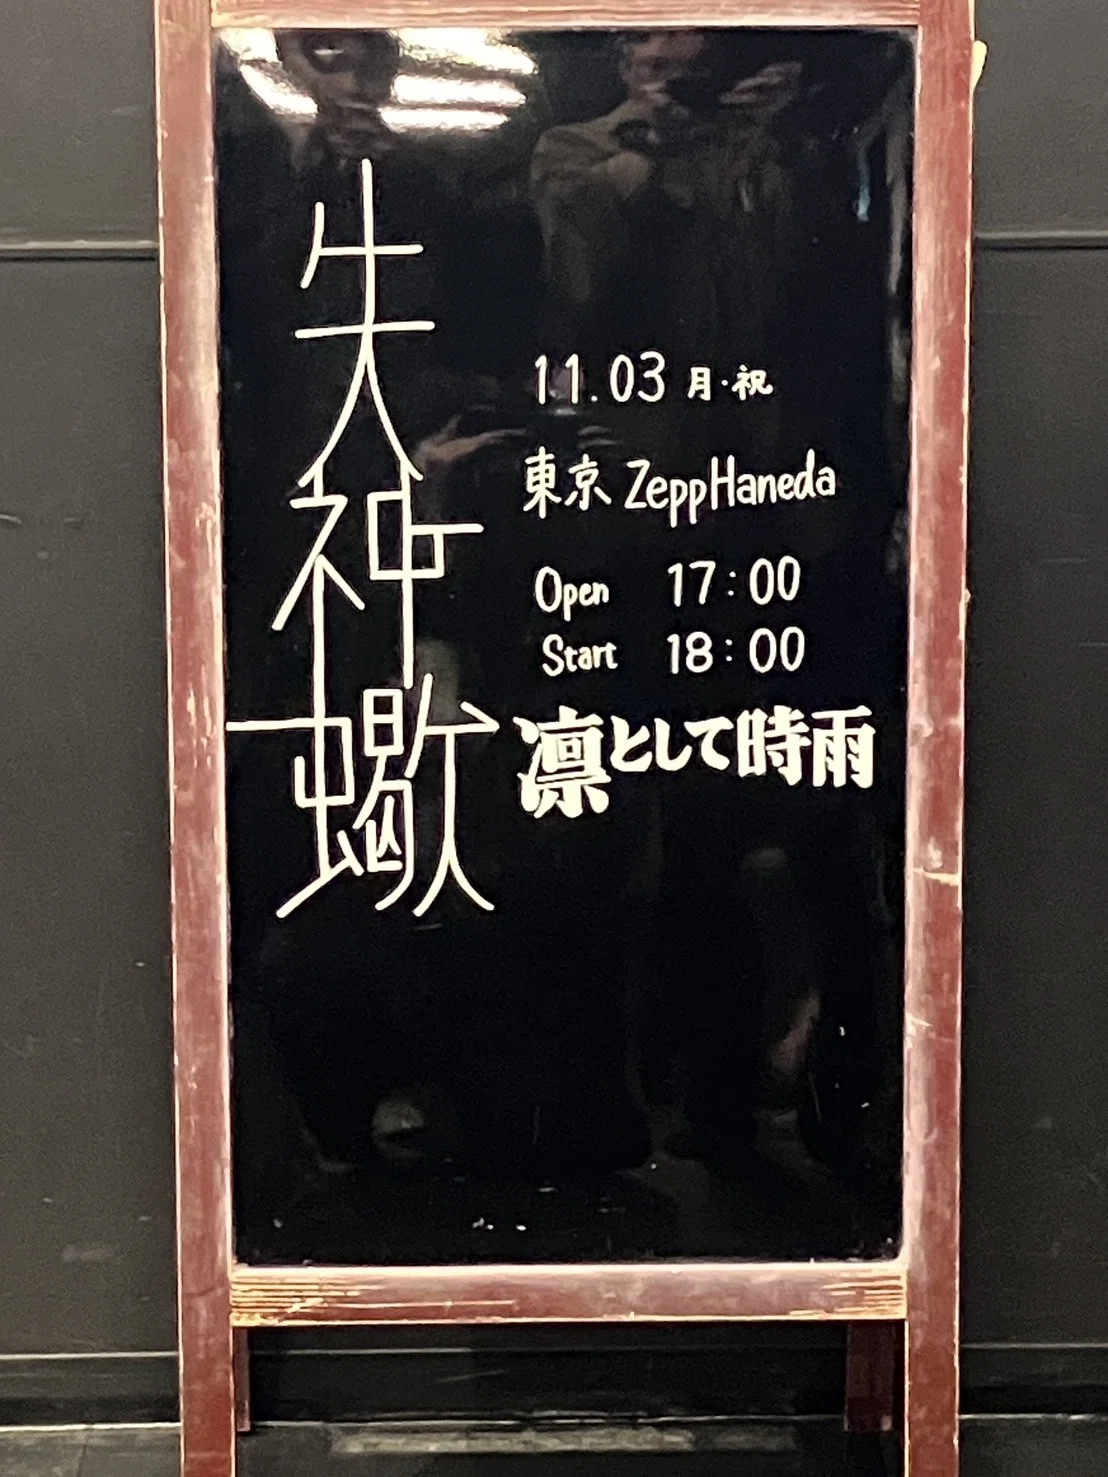 失神蠍
11.03 月・祝
東京 ZeppHaneda
Open 17:00
Start 18:00
凛として時雨